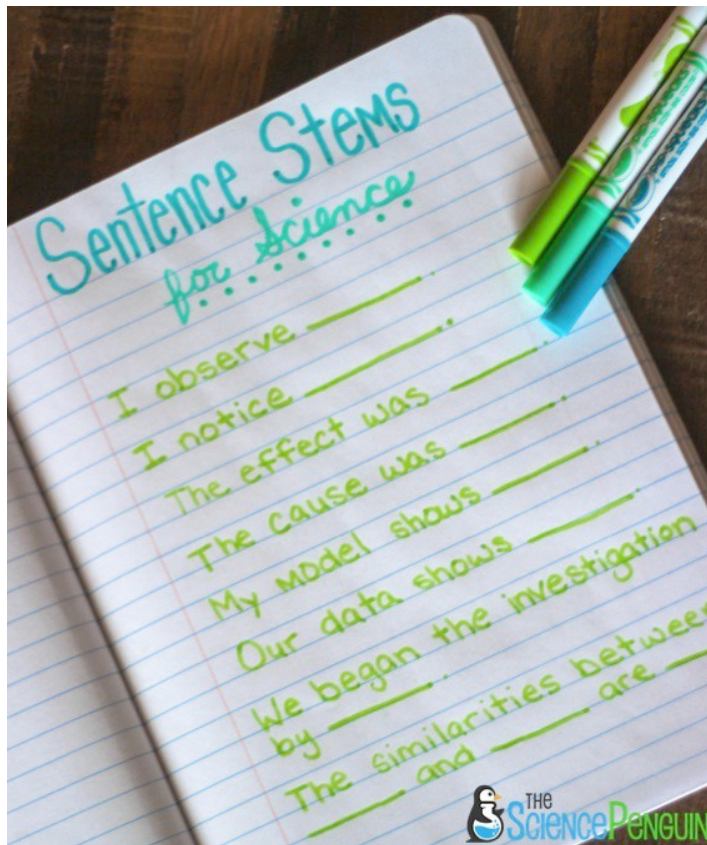 Sentence Stems
for Science
I observe ______.
I notice ______.
The effect was ______.
The cause was ______.
My model shows ______.
Our data shows ______.
We began the investigation
by ______.
The similarities between
______ and ______ are ___
THE
SCIENCEPENGUIN